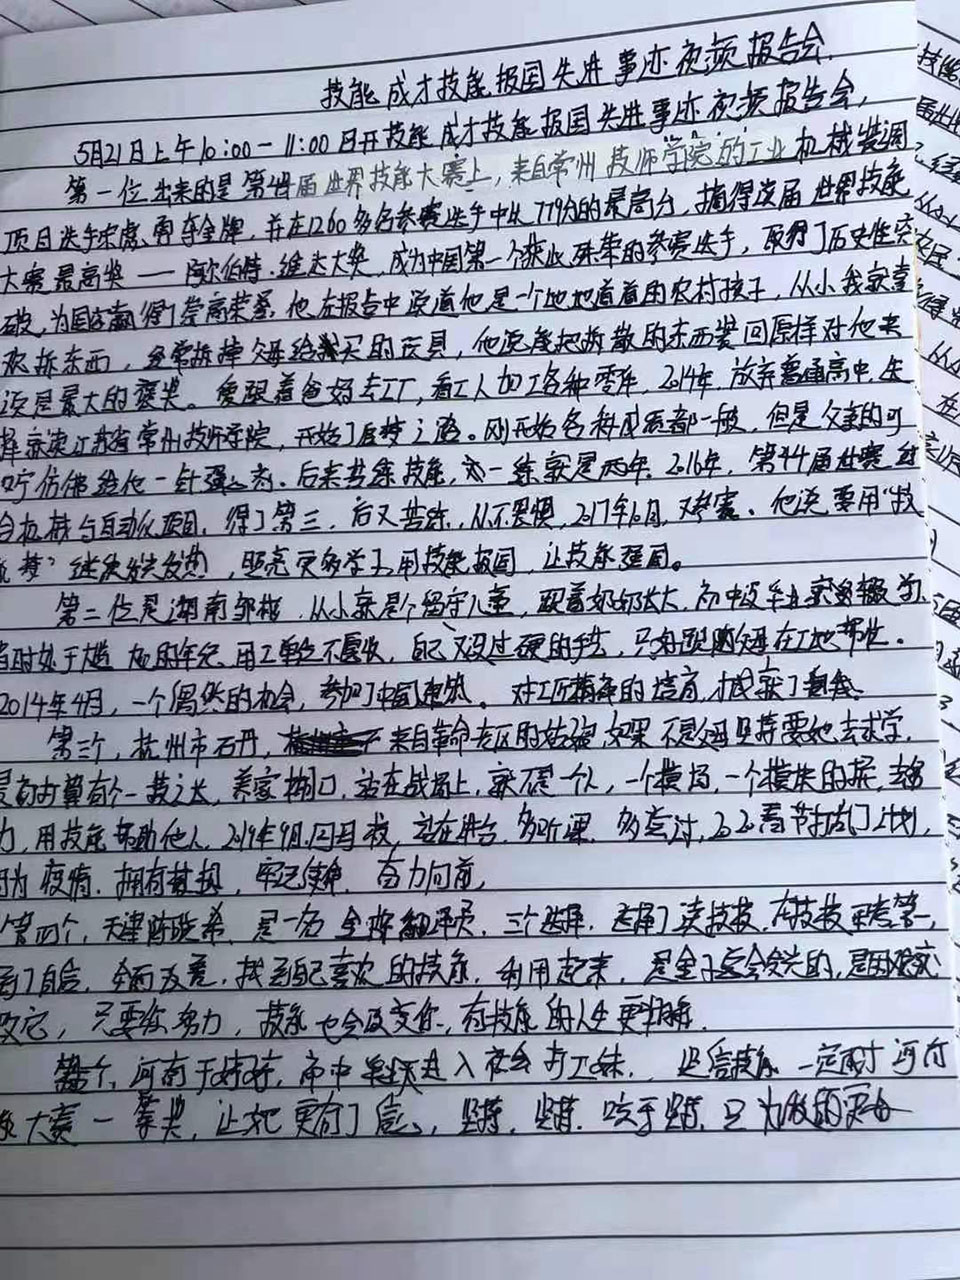 技能成才技能报国先进事迹视频报告会.
5月21日上午10:00-11:00召开技能成才技能报国先进事迹视频报告会,
第一位出来的是第44届世界技能大赛上,来自常州技师学院的工业机械装调
项目选手宋彪,勇夺金牌,并在1260多名参赛选手中以779分的最高台,摘得该届世界技能
大赛最高奖——阿尔伯特.维达大奖,成为中国第一个获此殊荣的参赛选手,取得了历史性突
破,为国家赢得了崇高荣誉.他在报告中说道他是一个地地道道的农村孩子,从小我就喜
欢拆东西,经常拆掉父母给买的玩具,他说能把拆散的东西装回原样对他来
说是最大的褒奖。爱跟着爸妈去工厂,看工人加工各种零件,2014年,放弃普通高中,选
择就读江苏省常州技师学院,开始了启梦之路。刚开始各科成绩都一般,但是父亲的叮
咛仿佛给他一针强心剂.后来苦练技能,这一练就是两年.2016年,第44届世赛
机械与自动化项目,得了第三,后又苦练,从不畏惧,2017年10月,又参赛。他说要用“技
能梦”继续发光发热,照亮更多学子,用技能报国,让技能强国。
第二位是湖南邹彬.从小就是个留守儿童,跟着奶奶长大,初中没毕业就辍学
当时处于尴尬的年纪.用工单位不愿收,自己又没过硬的手艺,只有跟随父母在工地帮忙。
2014年4月,一个偶然的机会,参加了中国建筑。对工匠精神的培育,成就了自我
第三个,杭州市石丹,来自革命老区的姑娘,如果不是父母坚持要她去求学,
最初打算有个一技之长,养家糊口,站在战场上,就不是一个人,一个模块,一个模块的
力,用技能帮助他人.2019年9月,回母校,站在讲台,多听课,多,2020春节打乱了计划,
因为疫情.拥有技,牢记使命,奋力向前,
第四个,天津陈晓希,是一名金牌翻译员,三个选择,选择了读技校,在技校第一,
有了自信,全面发展,找到自己喜欢的技能,利用起来,是金子总会发光的,是因
改它,只要你努力,技能也会改变你,有技能的人生更精彩.
第五个,河南于好好,初中毕业进入社会打工妹,坚信技能一定能
大赛一等奖,让她更有了信心,坚持,坚持,坚持,只为